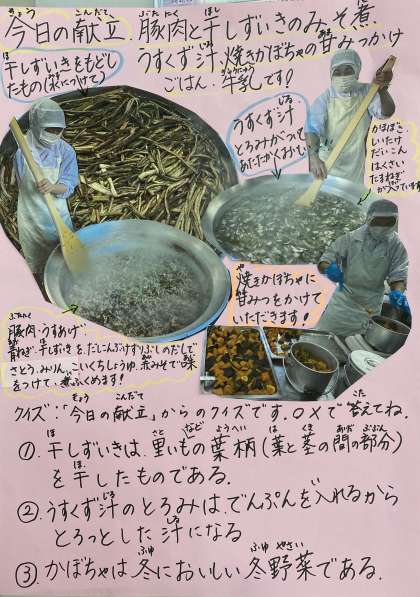 今日の献立 豚肉と干しずいきのみそ煮
うすくず汁 焼きかぼちゃの甘みつかけ
ごはん.牛乳です!
干しずいきをもどし
たもの(水につけて)
うすくず汁
とろみがついて
あたたかくみたい
かまぼこ
しいたけ
だいこん
はくさい
たまねぎ
が入っています
焼きかぼちゃに
甘みつをかけて
いただきます!
豚肉・うすあげ・
青ねぎ・干しずいきを、だしこんぶけずりぶしのだしで
さとう、みりん、こいくちしょうゆ、赤みそで味
をつけて、煮ふくめます!
クイズ:「今日の献立」からのクイズです。○×で答えてね。
①.干しずいきは、里いもの葉柄(葉と茎の間の部分)
を干したものである.
②.うすくず汁のとろみは、でんぷんを入れるから
とろっとした汁になる
③.かぼちゃは冬においしい冬野菜である.